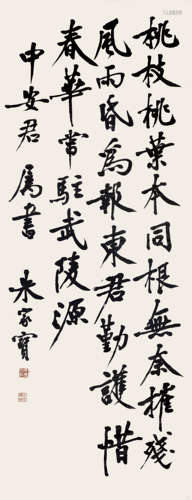 桃枝桃葉本同根無奈摧殘
風雨昏為報東君勤護惜
春華常駐武陵源
中安君屬書
朱家寶